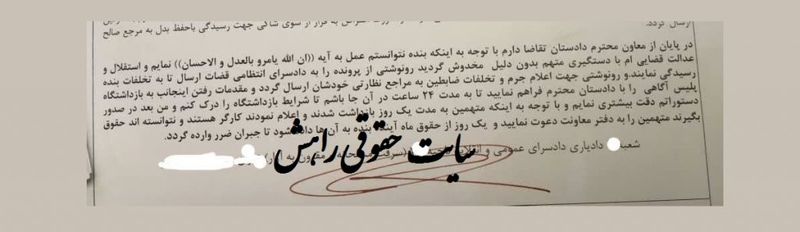 ارسال گردد.
قرار از سوی شاکی جهت رسیدگی باحفظ بدل به مرجع صالح
در پایان از معاون محترم دادستان تقاضا دارم با توجه به اینکه بنده نتوانستم عمل به آیه ((ان الله یامرو بالعدل و الاحسان)) نمایم و استقلال و
عدالت قضایی ام با دستگیری متهم بدون دلیل مخدوش گردید رونوشتی از پرونده را به دادسرای انتظامی قضات ارسال تا به تخلفات بنده
رسیدگی نمایند و رونوشتی جهت اعلام جرم و تخلفات ضابطین به مراجع نظارتی خودشان ارسال گردد و مقدمات رفتن اینجانب به بازداشتگاه
پلیس آگاهی را با دادستان محترم فراهم نمایید تا به مدت ۲۴ ساعت در آن جا باشم تا شرایط بازداشتگاه را درک کنم و من بعد در صدور
دستوراتم دقت بیشتری نمایم و با توجه به اینکه متهمین به مدت یک روز بازداشت شدند و اعلام نمودند کارگر هستند و نتوانسته اند حقوق
بگیرند متهمین را به دفتر معاونت دعوت نمایید و یک روز از حقوق ماه آینده بنده به آن ها داده شود تا جبران ضرر وارده گردد.
شعبه دادیاری دادسرای عمومی و انقلاب
سایت حقوقی راهش